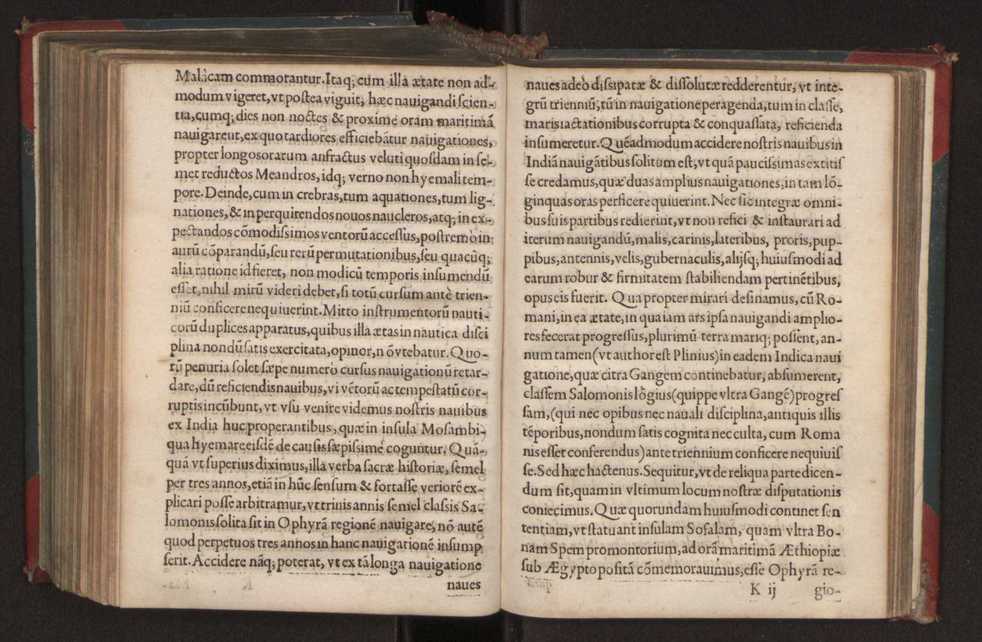 Malacam commorantur. Itaq; cum illa ætate non ad-
modum vigeret, vt postea viguit, hæc nauigandi scien-
tia, cumq; dies non noctes & proxime oram maritimā
nauigareut, ex quo tardiores efficiebātur nauigationes,
propter longos orarum anfractus veluti quosdam in se-
met reductos Meandros, idq; verno non hyemali tem-
pore. Deinde, cum in crebras, tum aquationes, tum lig-
nationes, & in perquirendos nouos naucleros, atq; in ex-
pectandos cōmodissimos ventorū accessus, postremo in
aurū cōparandū, seu rerū permutationibus, seu quacūq;
alia ratione id fieret, non modicū temporis insumendū
esset, nihil mirū videri debet, si totū cursum ante trien-
niū conficere nequiuerint. Mitto instrumentorū nauti-
corū duplices apparatus, quibus illa ætas in nautica disci
plina nondū satis exercitata, opinor, nō vtebatur. Quo-
rū penuria solet sæpe numero cursus nauigationū retar-
dare, dū reficiendis nauibus, vi vētorū ac tempestatū cor-
ruptis incūbunt, vt vsu venire videmus nostris nauibus
ex India huc properantibus, quæ in insula Mosambi-
qua hyemare eisdē de causis sæpissime coguntur. Quā-
quā vt superius diximus, illa verba sacræ historiæ, semel
per tres annos, etiā in hūc sensum & fortasse veriorē ex-
plicari posse arbitramur, vt trinis annis semel classis Sa-
lomonis solita sit in Ophyrā regionē nauigare, nō autē
quod perpetuos tres annos in hanc nauigationē insump
serit. Accidere nāq; poterat, vt ex tā longa nauigatione
naues
naues adeò dissipatæ & dissolutæ redderentur, vt inte-
grū trienniū, tū in nauigatione peragenda, tum in classe,
maris iactationibus corrupta & conquassata, reficienda
insumeretur. Quēadmodum accidere nostris nauibus in
Indiā nauigātibus solitum est, vt quā paucissimas extitis
se credamus, quæ duas amplius nauigationes, in tam lō-
ginquas oras perficere quiuerint. Nec sic integræ omni-
bus suis partibus redierint, vt non refici & instaurari ad
iterum nauigandū, malis, carinis, lateribus, proris, pup-
pibus, antennis, velis, gubernaculis, alijsq; huiusmodi ad
earum robur & firmitatem stabiliendam pertinētibus,
opus eis fuerit. Quapropter mirari desinamus, cū Ro-
mani, in ea ætate, in qua iam ars ipsa nauigandi amplio-
res fecerat progressus, plurimū terra mariq; possent, an-
num tamen (vt author est Plinius) in eadem Indica naui
gatione, quæ citra Gangem continebatur, absumerent,
classem Salomonis lōgius (quippe vltra Gangē) progres
sam, (qui nec opibus nec nauali disciplina, antiquis illis
tēporibus, nondum satis cognita nec culta, cum Roma
nis esset conferendus) ante triennium conficere nequiuis
se. Sed hæc hactenus. Sequitur, vt de reliqua parte dicen-
dum sit, quam in vltimum locum nostræ disputationis
coniecimus. Quæ quorundam huiusmodi continet sen
tentiam, vt statuant insulam Sofalam, quam vltra Bo-
nam Spem promontorium, ad orā maritimā Æthiopiæ
sub Ægypto positā cōmemorauimus, esse Ophyrā re-
K ij gio-